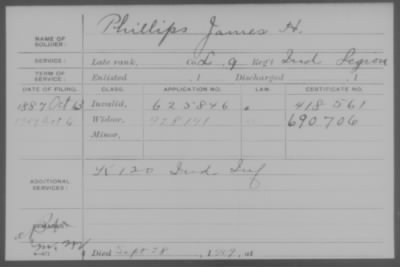 Phillips James H.
NAME OF SOLDIER:
SERVICE: Late rank, Co. L. 9 Reg't Ind Legion
TERM OF SERVICE: Enlisted , 1 Discharged , 1
DATE OF FILING. CLASS. APPLICATION NO. LAW. CERTIFICATE NO.
1887 Oct 3 Invalid, 625846 418561
Oct 6 Widow, 928191 690706
Minor,
ADDITIONAL SERVICES: K 120 Ind Inf
REMARKS:
Died Sept 28, 1909, at